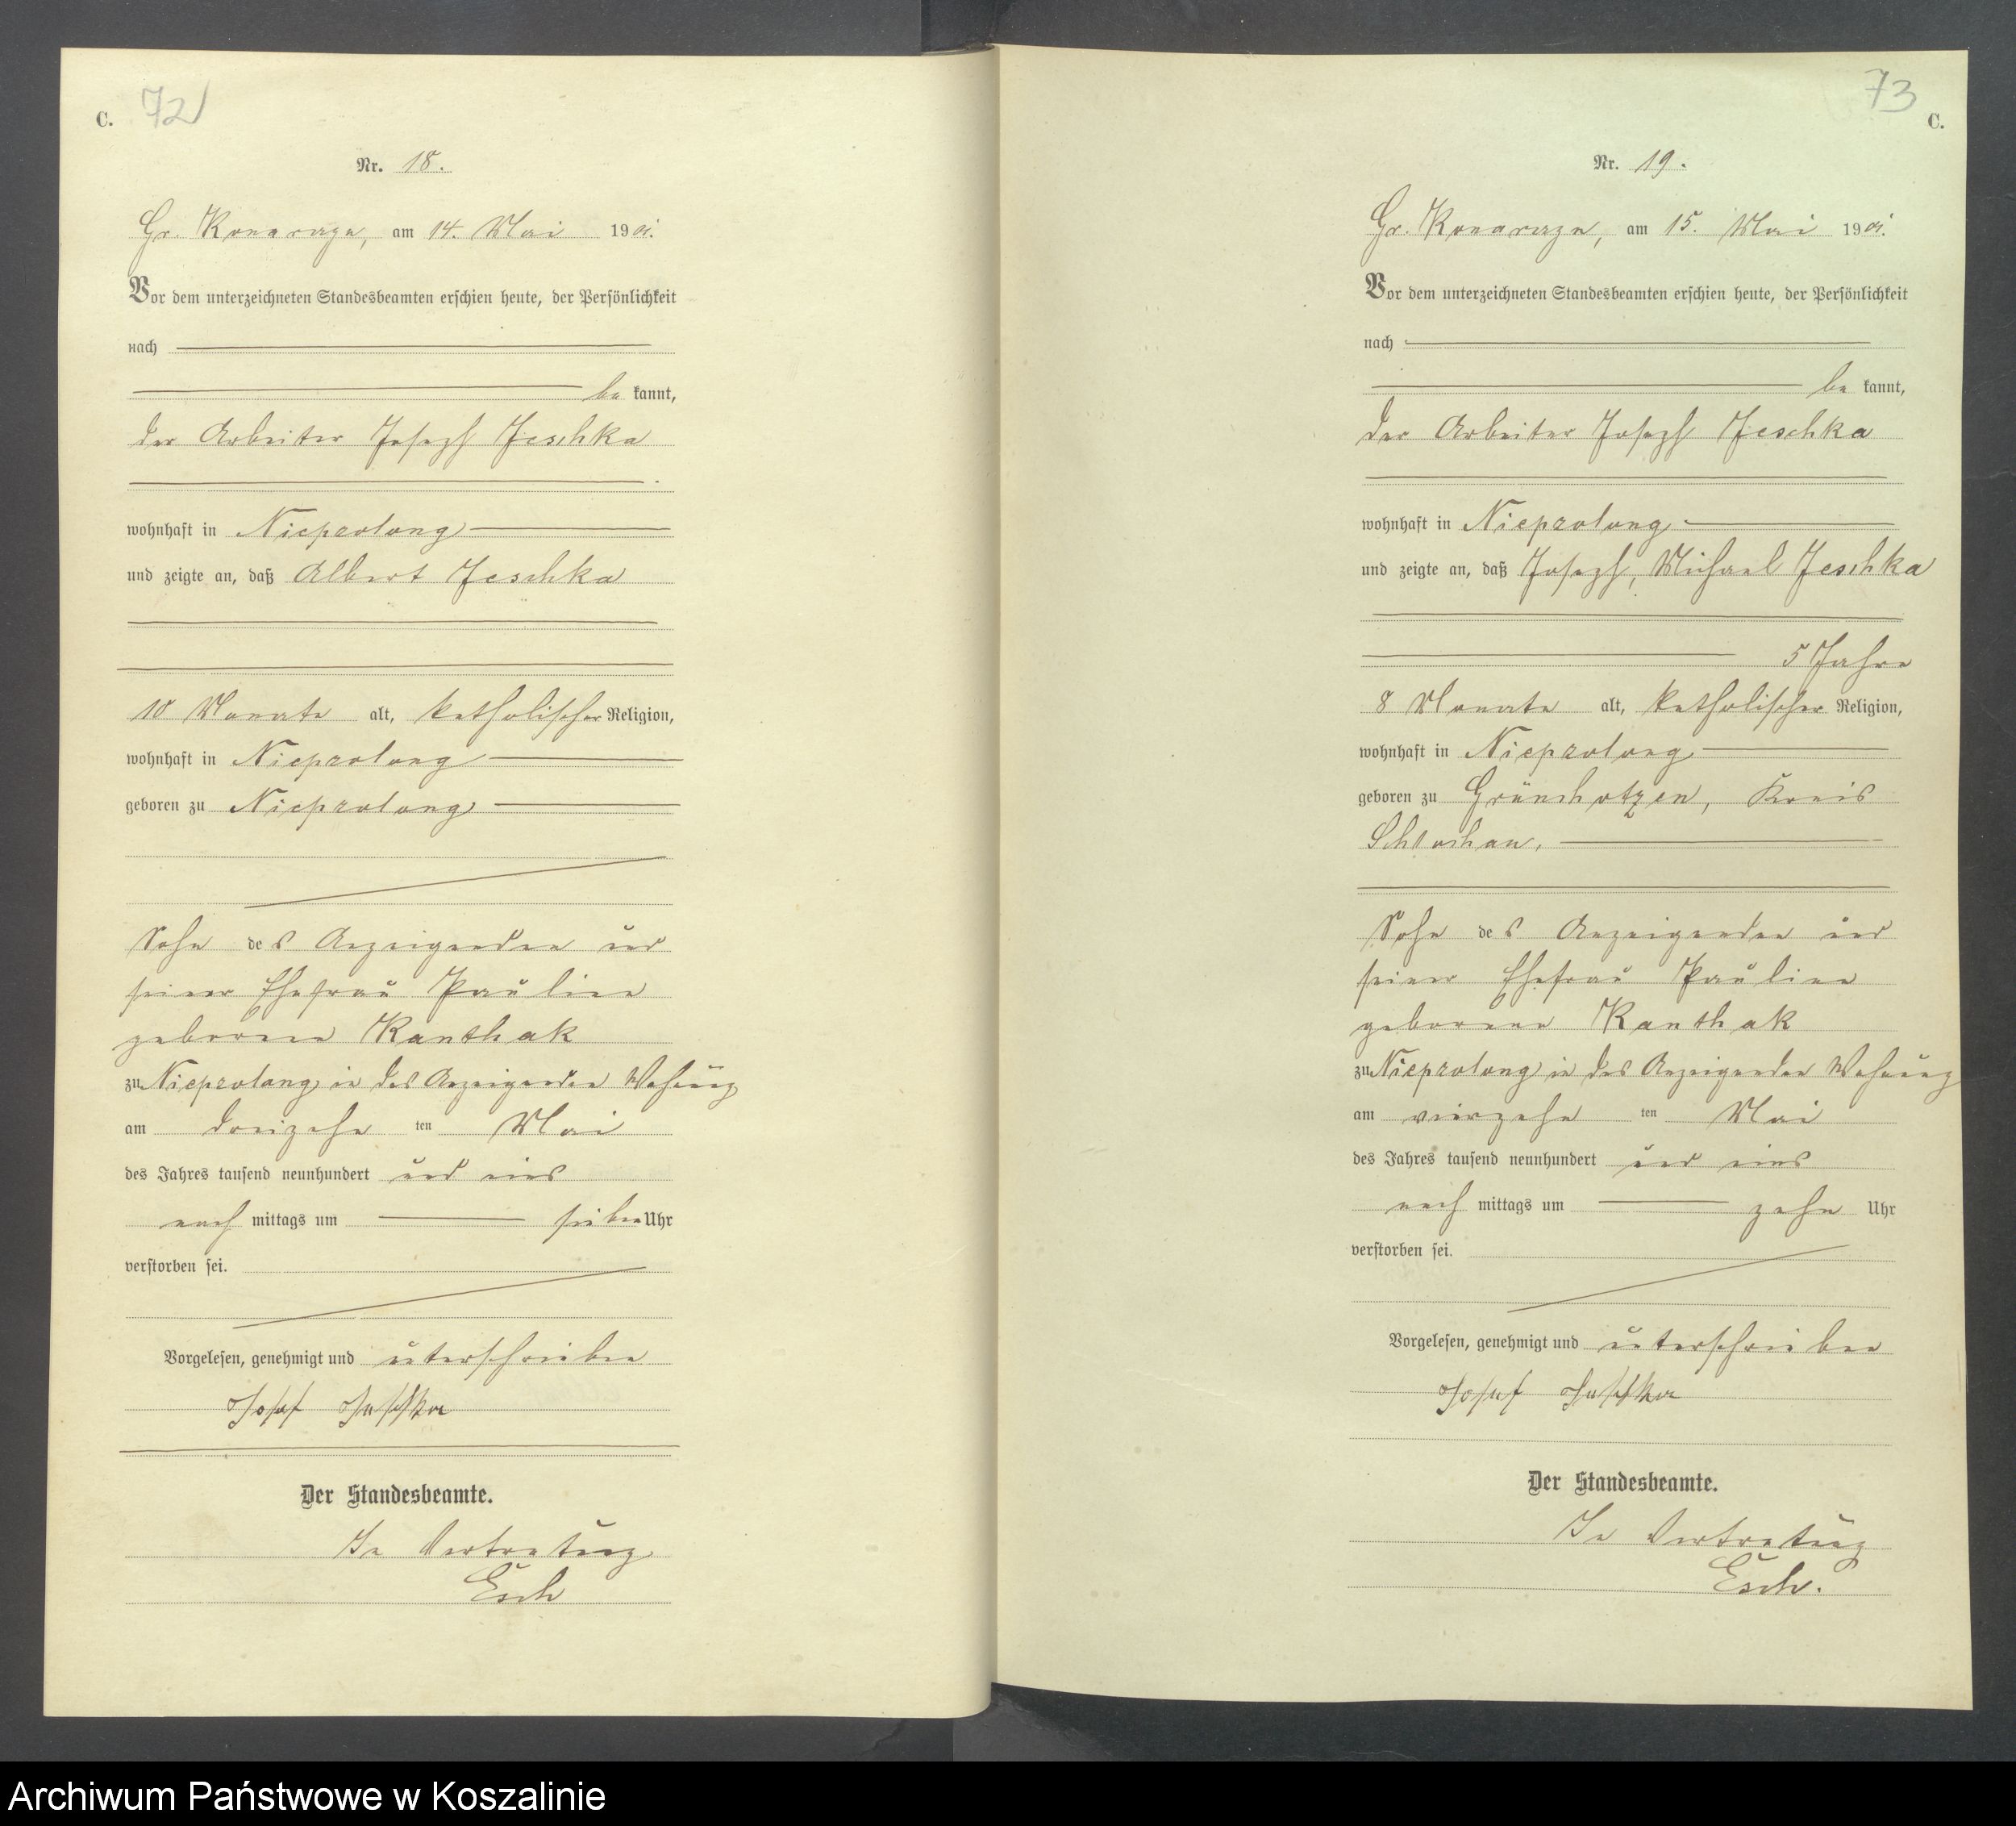 C. 72
Nr. 18.
Gr. Konarzyn, am 14. Mai 1901.
Vor dem unterzeichneten Standesbeamten erschien heute, der Persönlichkeit
nach
be kannt,
der Arbeiter Joseph Jeschka
wohnhaft in Nieprolong
und zeigte an, daß Albert Jeschka
10 Monate alt, katholischer Religion,
wohnhaft in Nieprolong
geboren zu Nieprolong
Sohn des Anzeigenden und
seiner Ehefrau Pauline
geborene Kanthak
zu Nieprolong in des Anzeigenden Wohnung
am dreizehn ten Mai
des Jahres tausend neunhundert und eins
nach mittags um sieben Uhr
verstorben sei.
Vorgelesen, genehmigt und unterschrieben
Josef Jeschka
Der Standesbeamte.
In Vertretung
Esch
73
C.
Nr. 19.
Gr. Konarzyn, am 15. Mai 1901.
Vor dem unterzeichneten Standesbeamten erschien heute, der Persönlichkeit
nach
be kannt,
der Arbeiter Joseph Jeschka
wohnhaft in Nieprolong
und zeigte an, daß Joseph, Michael Jeschka
5 Jahre
8 Monate alt, katholischer Religion,
wohnhaft in Nieprolong
geboren zu Grünchotzen, Kreis
Schlochau.
Sohn des Anzeigenden und
seiner Ehefrau Pauline
geborene Kanthak
zu Nieprolong in des Anzeigenden Wohnung
am vierzehn ten Mai
des Jahres tausend neunhundert und eins
nach mittags um zehn Uhr
verstorben sei.
Vorgelesen, genehmigt und unterschrieben
Josef Jeschka
Der Standesbeamte.
In Vertretung
Esch.
Archiwum Państwowe w Koszalinie